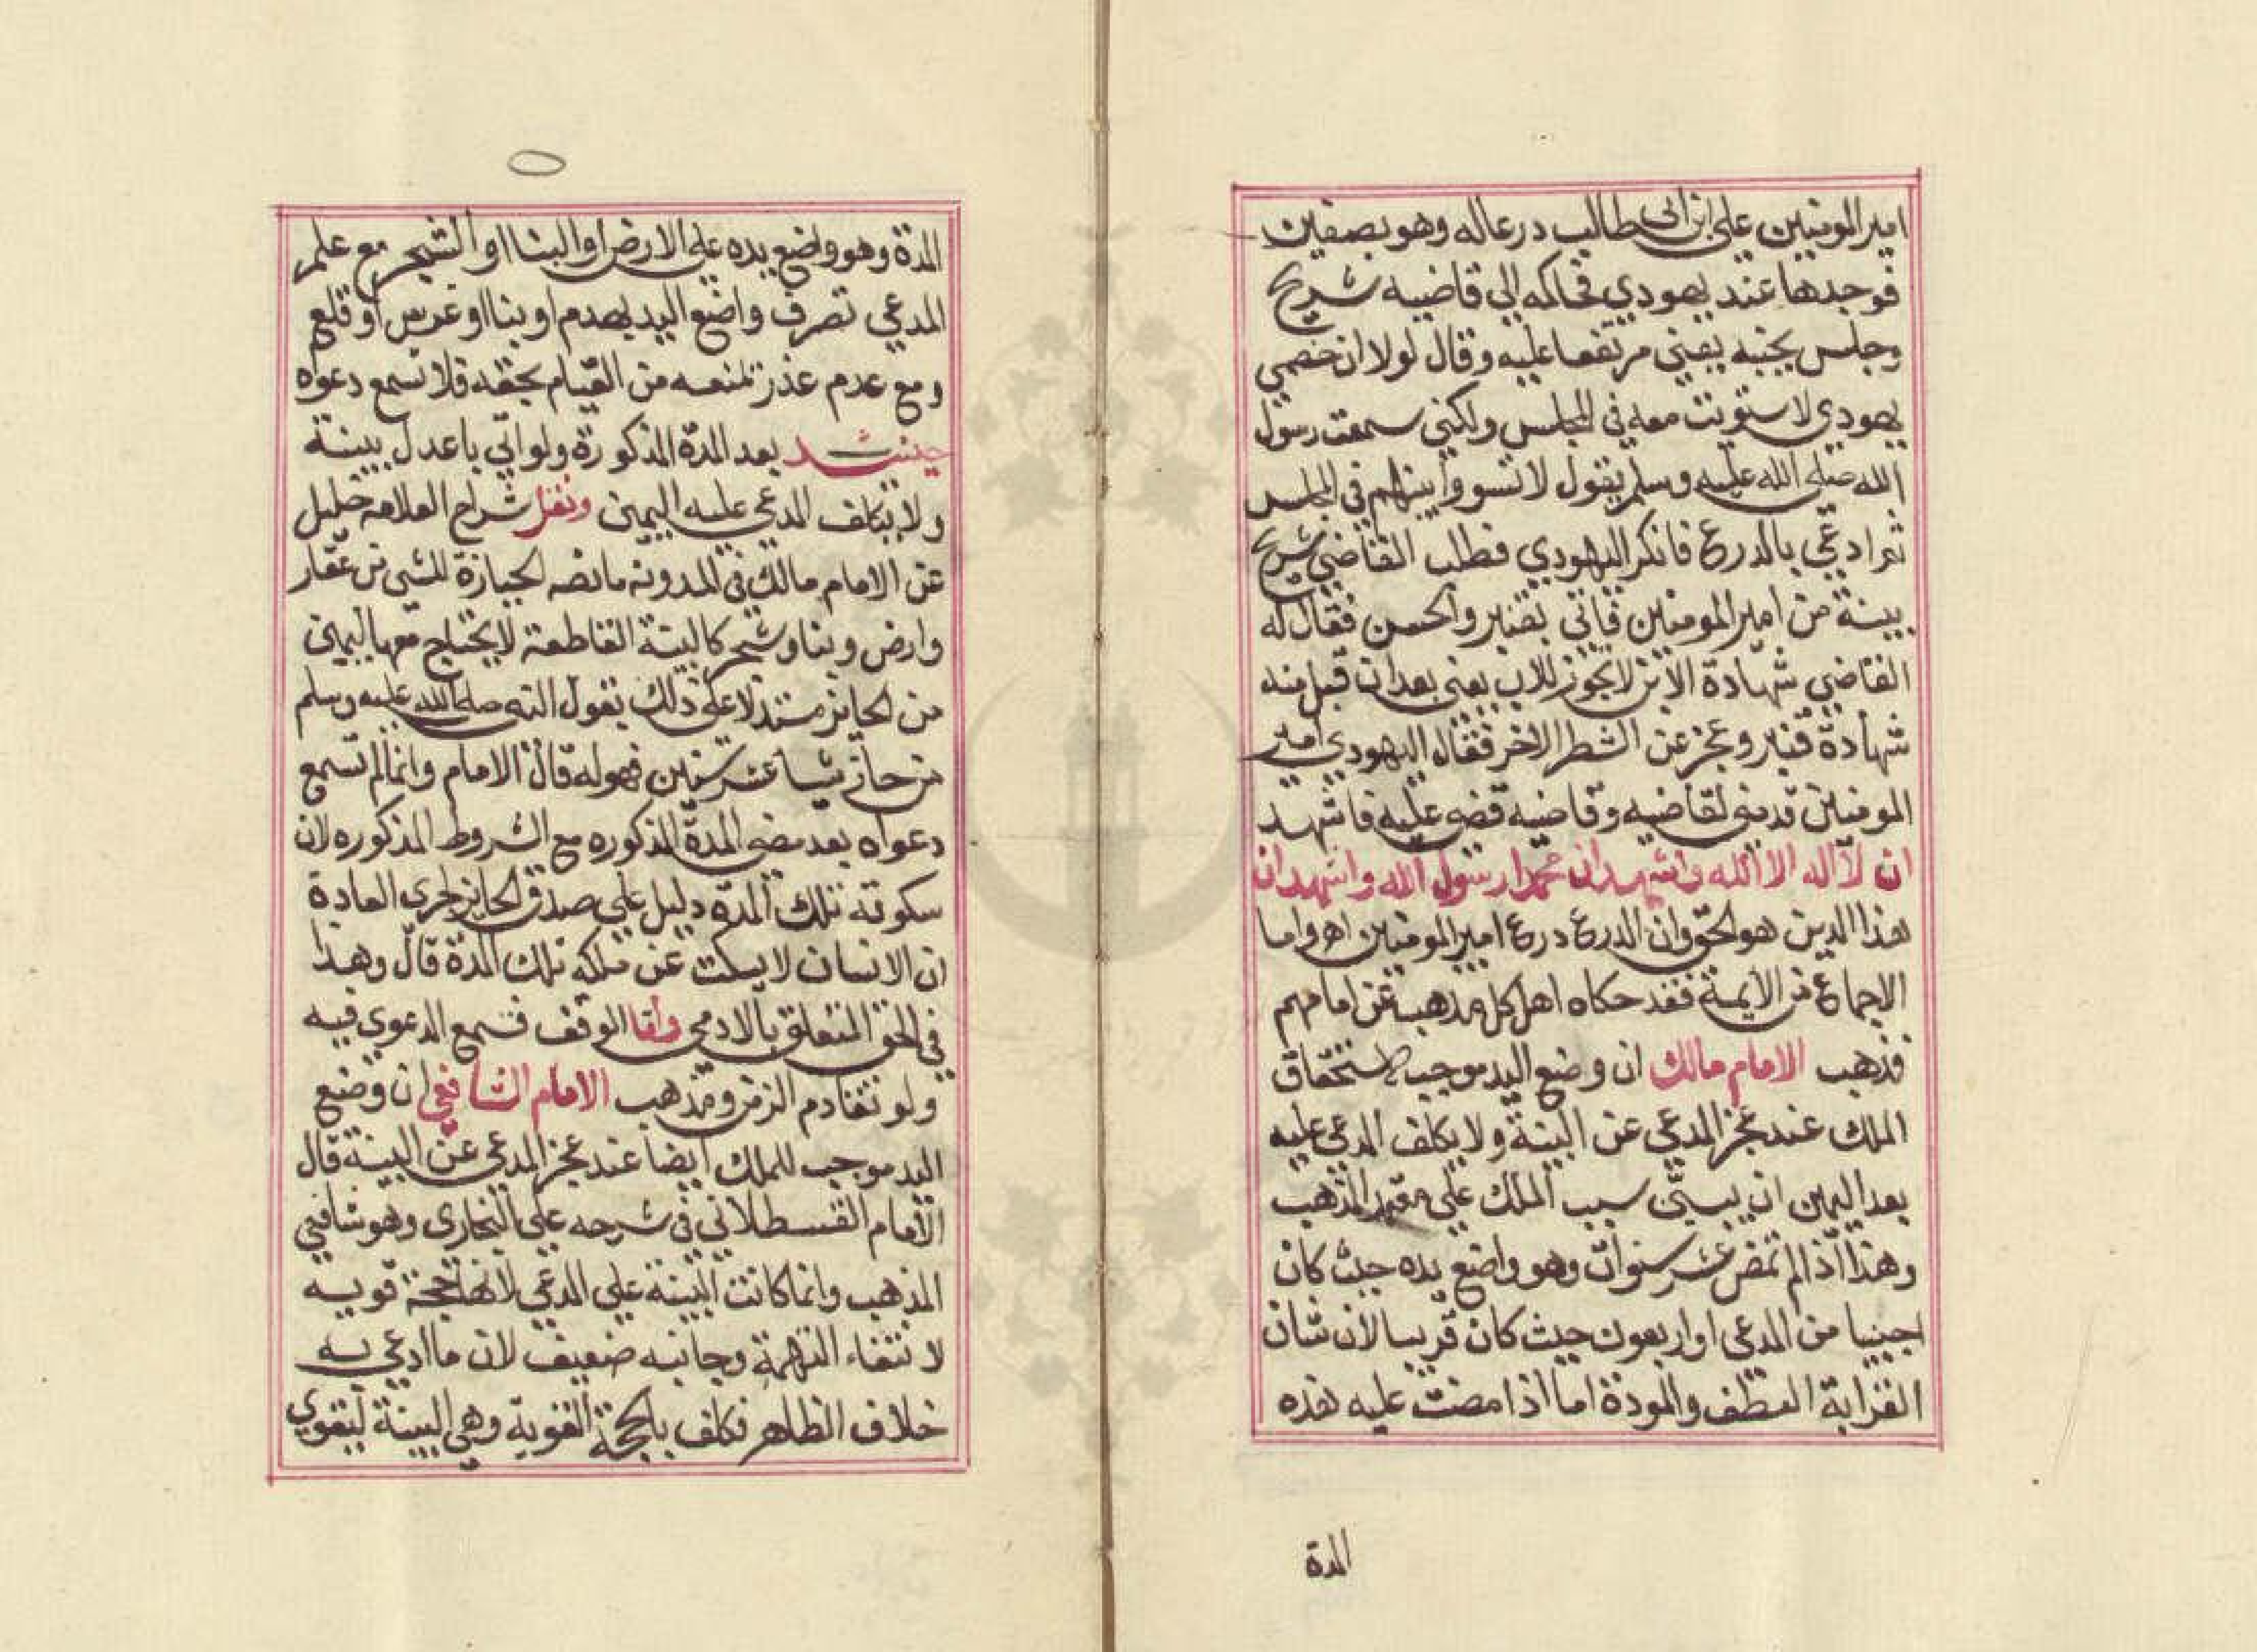 امير المومنين علي ابن ابي طالب درعا له وهو بصفين
فوجدها عند يهودي فحاكمه الي قاضيه شريح
وجلس بجنبه يعني مرتفعا عليه وقال لولا ان خصمي
يهودي لاستويت معه في المجلس ولكني سمعت رسول
الله صلي الله عليه وسلم يقول لا تسووا بينهم في المجلس
ثم ادعي بالدرع فانكر اليهودي فطلب القاضي شريح
بينة من امير المومنين فاتي بقنبر والحسن فقال له
القاضي شهادة الابن لا يجوز للاب يعني بعد ان قبل منه
شهادة قنبر وعجز عن الشطر الاخر فقال اليهودي امير
المومنين قدمني لقاضيه وقاضيه قضي عليه فاشهد
ان لا اله الا الله واشهد ان محمدا رسول الله واشهد ان
هذا الدين هو الحق وان الدرع درع امير المومنين اهـ واما
الاجماع من الايمة فقد حكاه اهل كل مذهب عن امامهم
فذهب الامام مالك ان وضع اليد موجب لاستحقاق
الملك عند عجز المدعي عن البينة ولا يكلف المدعي عليه
بعد اليمين ان يبين سبب الملك علي المذهب
وهذا اذا لم تمض عشر سنوات وهو واضع يده حيث كان
اجنبيا من المدعي او اربعون حيث كان قريبا لان شان
القرابة العطف والمودة اما اذا مضت عليه هذه
المدة
المدة وهو واضع يده علي الارض او البنا او الشجر مع علم
المدعي تصرف واضع اليد بهدم او بنا او غرس او قلع
ومع عدم عذر تمنعه من القيام بحقه فلا تسمع دعواه
حينئذ بعد المدة المذكورة ولو اتي باعدل بينة
ولا يتكلف المدعي عليه اليمين ونقل شراح العلامة خليل
عن الامام مالك في المدونة ما نصه الحيازة لشي من عقار
وارض وبنا وشجر كالبينة القاطعة لا يحتاج معها اليمين
من الحايز مستدلا علي ذلك بقول النبي صلي الله عليه وسلم
من حاز شيا عشر سنين فهو له قال الامام وانما لم تسمع
دعواه بعد مضي المدة المذكوره مع الشروط المذكوره لان
سكوته تلك المدة دليل علي صدق الحايز لجري العادة
ان الانسان لا يسكت عن ملكه تلك المدة قال وهذا
في الحق المتعلق بالادمي واما الوقف فتسمع الدعوي فيه
ولو تقادم الزمن ومذهب الامام الشافعي ان وضع
اليد موجب للملك ايضا عند عجز المدعي عن البينة قال
الامام القسطلاني في شرحه علي البخاري وهو شافعي
المذهب وانما كانت البينة علي المدعي لانها حجة قوية
لانتفاء التهمة وجانبه ضعيف لان ما ادعي به
خلاف الظاهر فكلف بالحجة القوية وهي البينة ليقوي